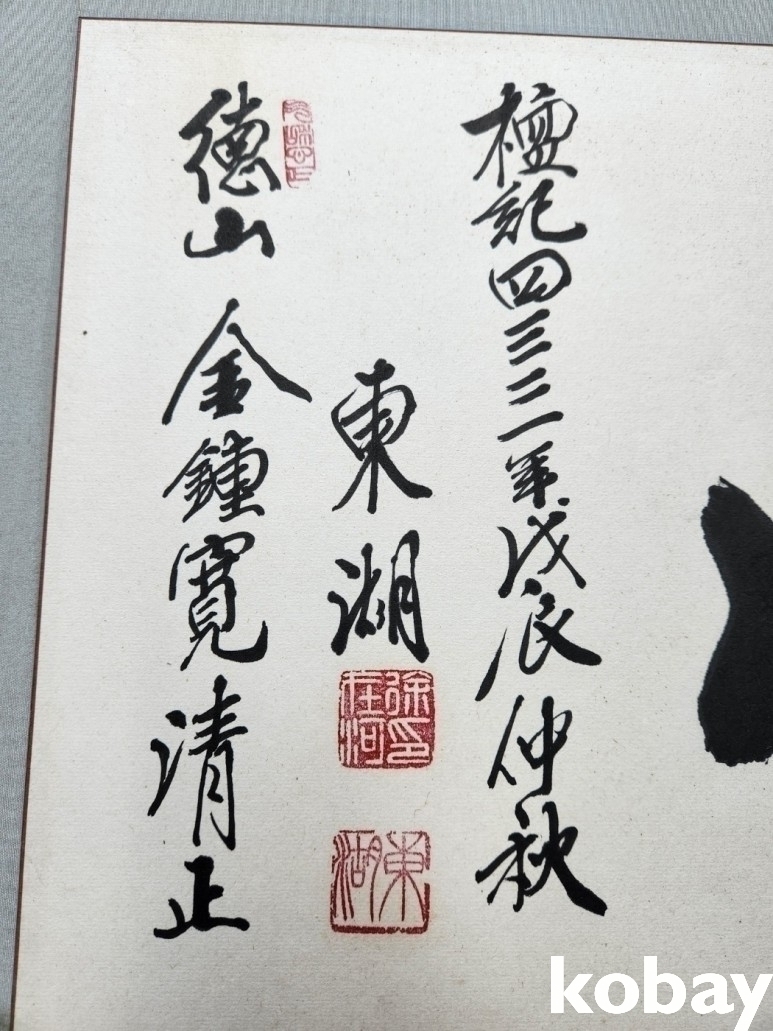 檀記四三二一年戊辰仲秋
東湖
德山 金鍾寬 清正
徐在河印
東湖
kobay